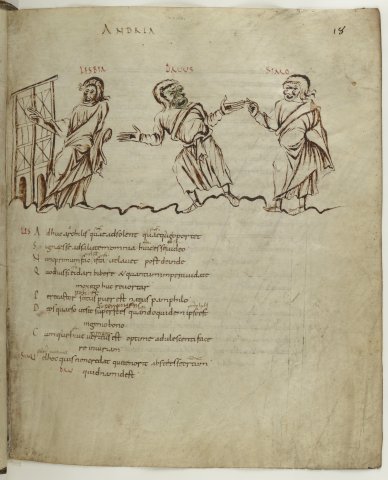 ANDRIA
18
LESBIA DAVUS SIMO
LES A dhuc archilis quae adsolent quaeque oportet
S igna esse ad salutem omnia huic esse video
N unc primum fac ista ut lavet post deinde
Q uod iussi ei dari bibere & quantum imperavi date
mox ego huc revertor
P er ecastor scitus puer est natus pamphilo
D eos quaeso ut sit superstes quandoquidem ipse est
ingenio bono
C umque huic veritus est optime adulescenti face
re iniuriam
SIMO adhoc quis non credat qui te norit abs te esse ortum
DAV quidnam id est